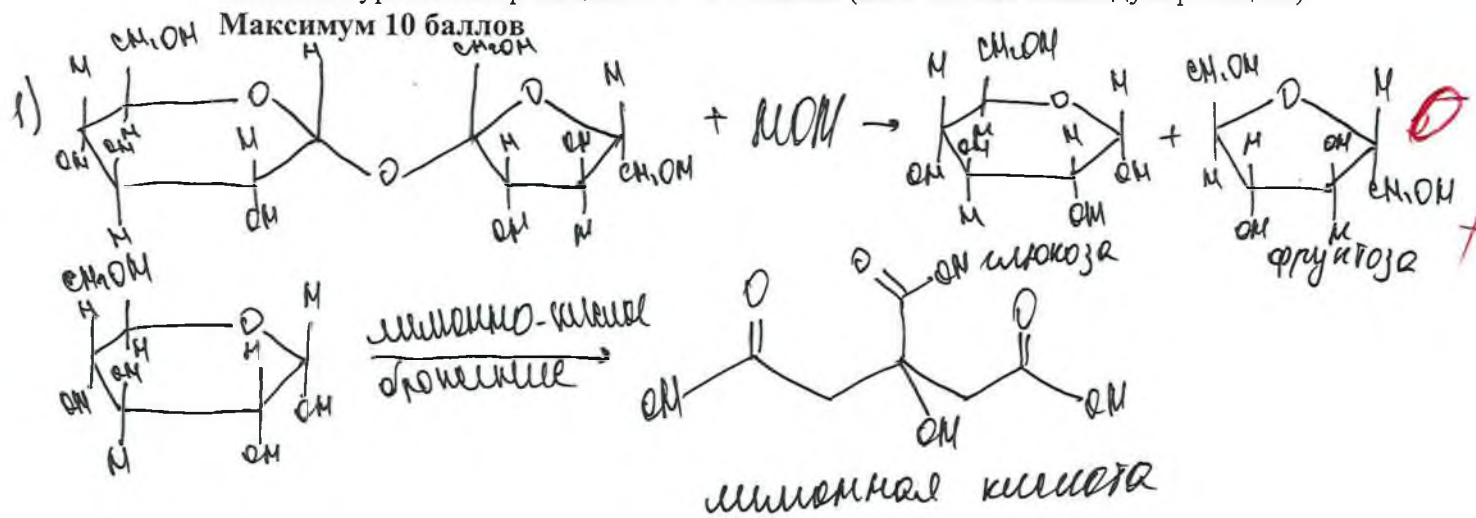 Максимум 10 баллов
1)
H CH₂OH H CH₂OH H
O O
OH OH H H H OH
H OH O OH H CH₂OH
+ HOH →
H CH₂OH O H
OH OH H H OH
H OH
глюкоза
+
CH₂OH O H
H H OH CH₂OH
OH H
фруктоза
CH₂OH
H O H
H OH H
OH OH
H OH
лимонно-кислое
брожение
O O OH O
OH OH OH
лимонная кислота